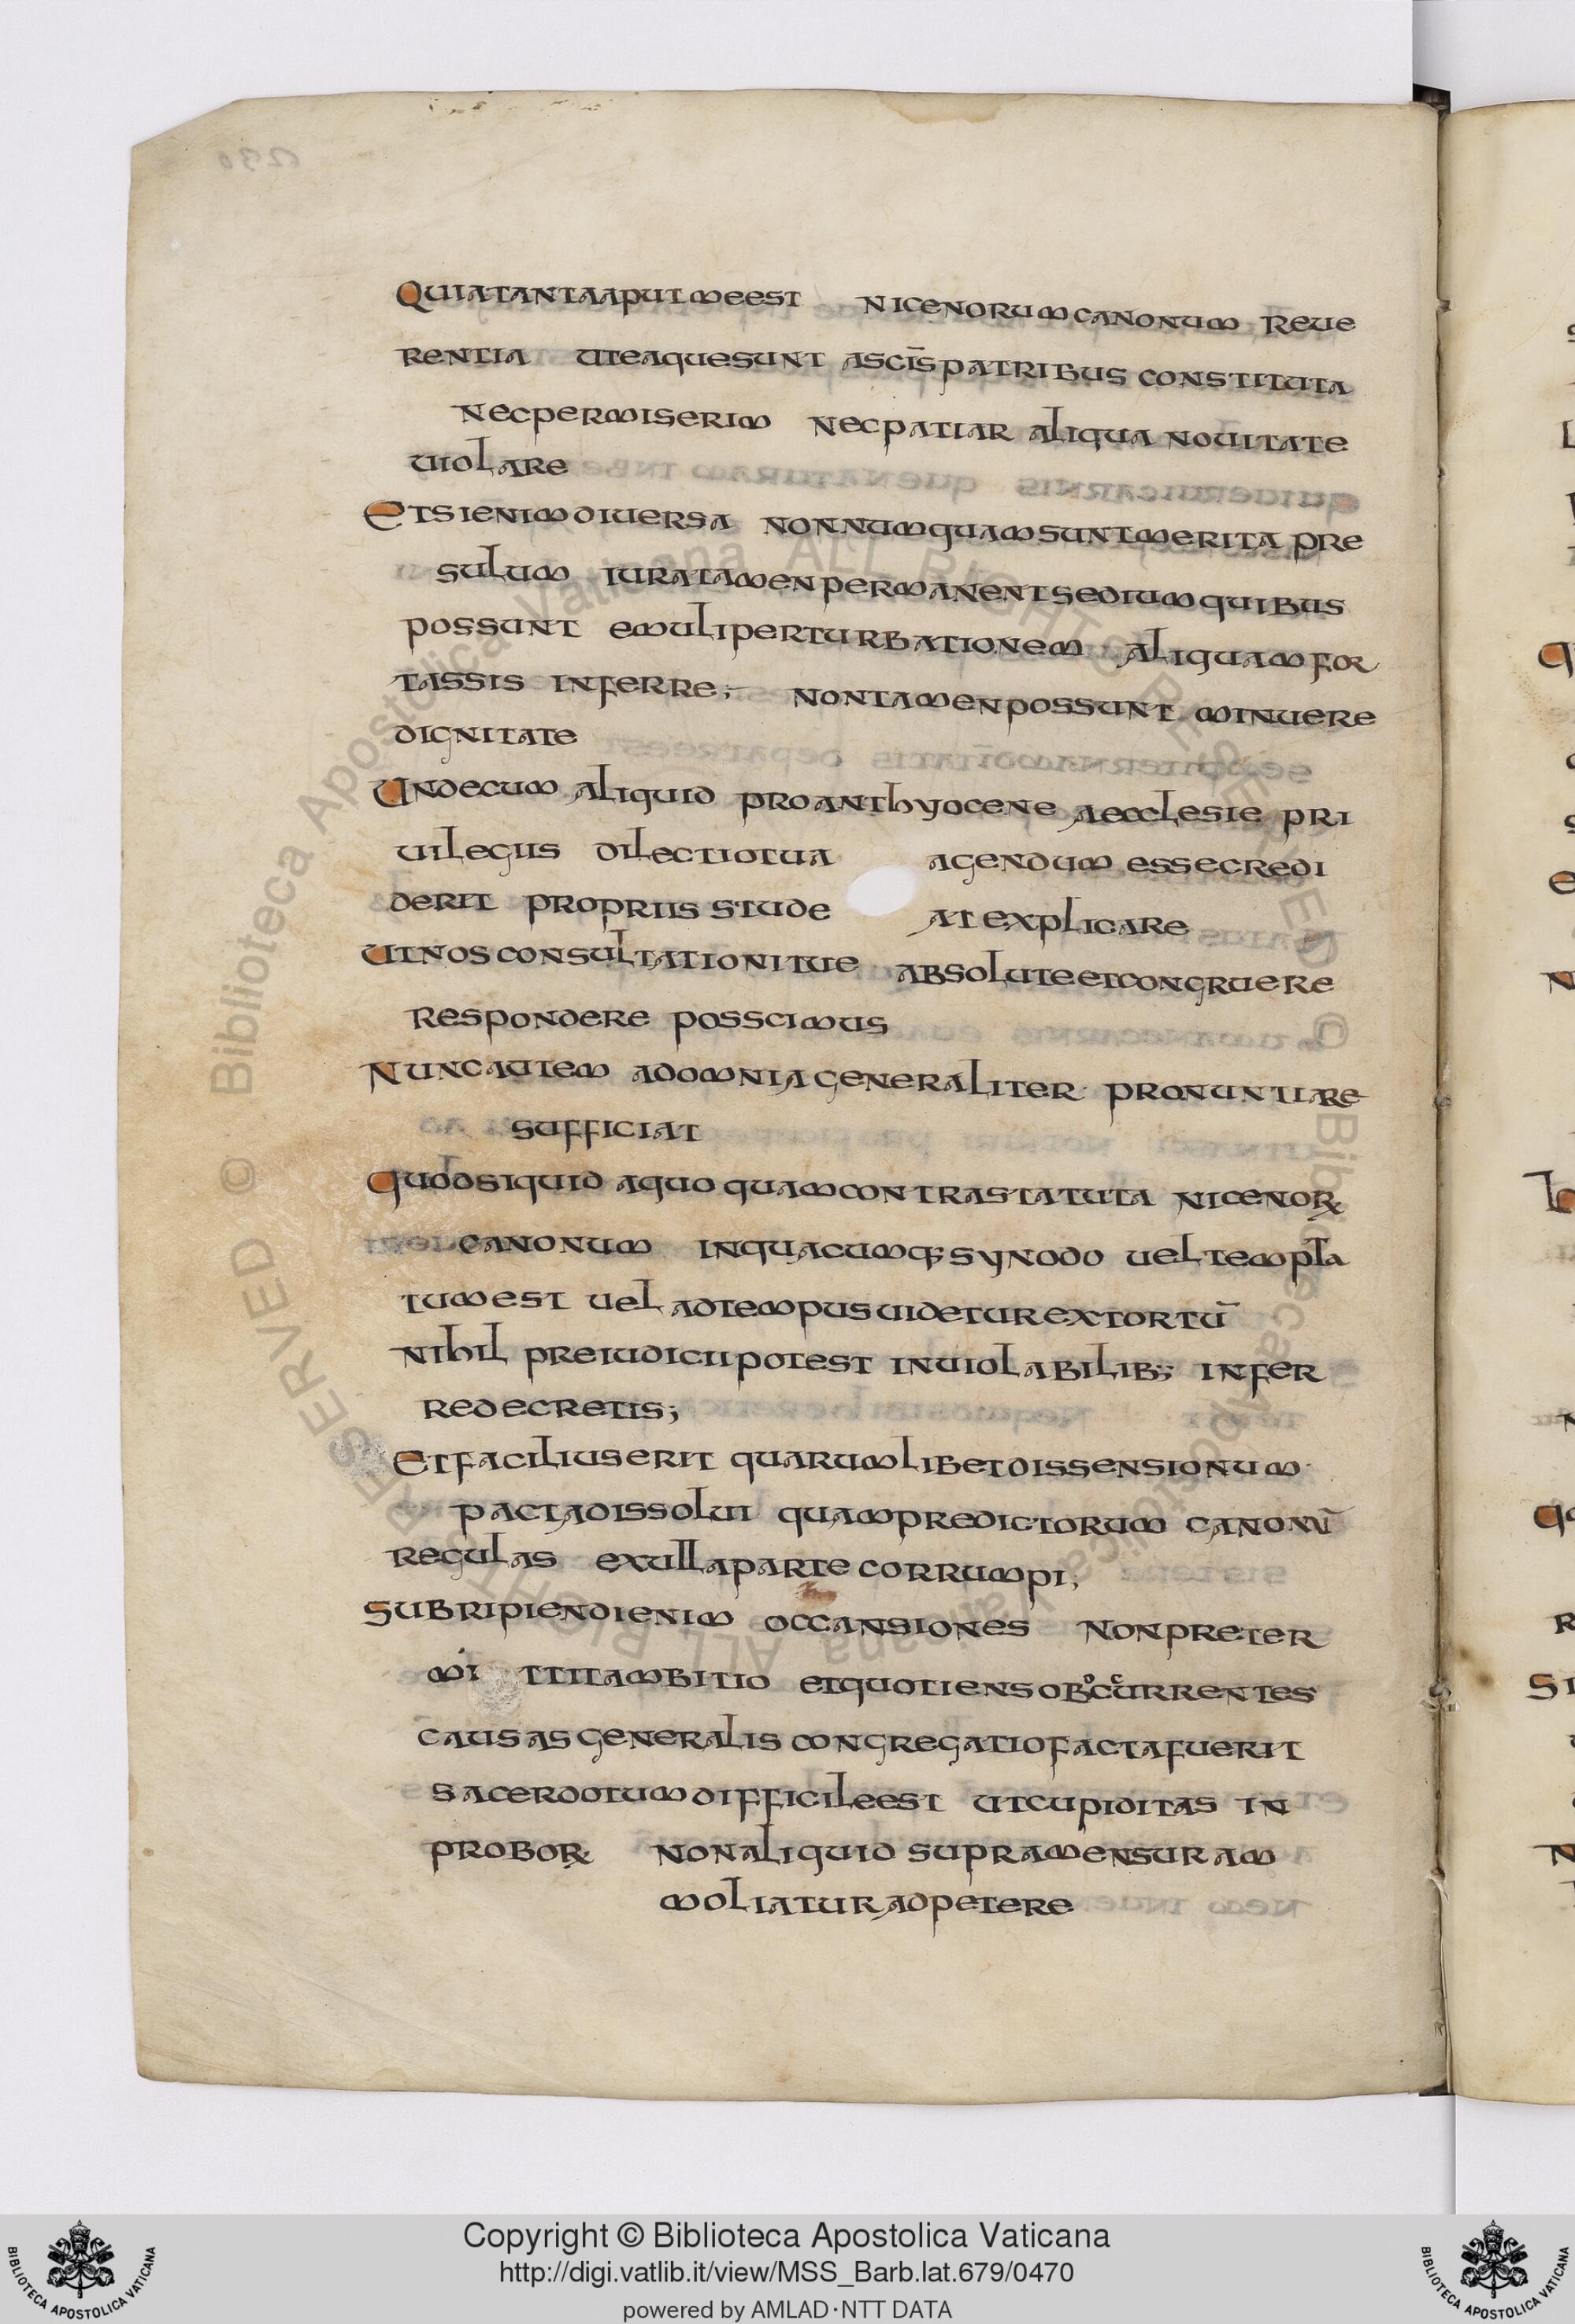 QUIATANTAAPUT MEEST NICENORUM CANONUM REUE
RENTIA UTEAQUESUNT ASCĪS PATRIBUS CONSTITUTA
NECPERMISERIM NECPATIAR ALIQUA NOUITATE
UIOLARE
ETSIENIMDIUERSA NONNUMQUAMSUNTMERITA PRE
SULUM IURATAMENPERMANENTSEDIUMQUIBUS
POSSUNT EMULIPERTURBATIONEM ALIQUAMFOR
TASSIS INFERRE; NONTAMENPOSSUNT MINUERE
DIGNITATE
UNDECUM ALIQUID PROANTHYOCENE AECCLESIE PRI
UILEGIIS DILECTIOTUA AGENDUM ESSECREDI
DERIT PROPRIISSTUDE AT EXPLICARE
UTNOSCONSULTATIONITUE ABSOLUTEETCONGRUERE
RESPONDERE POSSCIMUS
NUNCAUTEM ADOMNIAGENERALITER PRONUNTIARE
SUFFICIAT
QUODSIQUID AQUO QUAMCONTRASTATUTA NICENOꝜ
CANONUM INQUACUMQ; SYNODO UELTEMPTA
TUMEST UEL ADTEMPUSUIDETUREXTORTŪ
NIHIL PREIUDICIIPOTEST INUIOLABILIB; INFER
REDECRETIS;
ETFACILIUSERIT QUARUMLIBETDISSENSIONUM
PACTADISSOLUI QUAMPREDICTORUM CANONŪ
REGULAS EXULLAPARTECORRUMPI;
SUBRIPIENDIENIM OCCANSIONES NONPRETER
MI TTITAMBITIO ETQUOTIENSOBCURRENTES
CAUSASGENERALIS CONGREGATIOFACTAFUERIT
SACERDOTUMDIFFICILEEST UTCUPIDITAS IN
PROBOꝜ NONALIQUID SUPRAMENSURAM
MOLIATURADPETERE
Copyright © Biblioteca Apostolica Vaticana
http://digi.vatlib.it/view/MSS_Barb.lat.679/0470
powered by AMLAD·NTT DATA
BIBLIOTECA APOSTOLICA VATICANA
BIBLIOTECA APOSTOLICA VATICANA